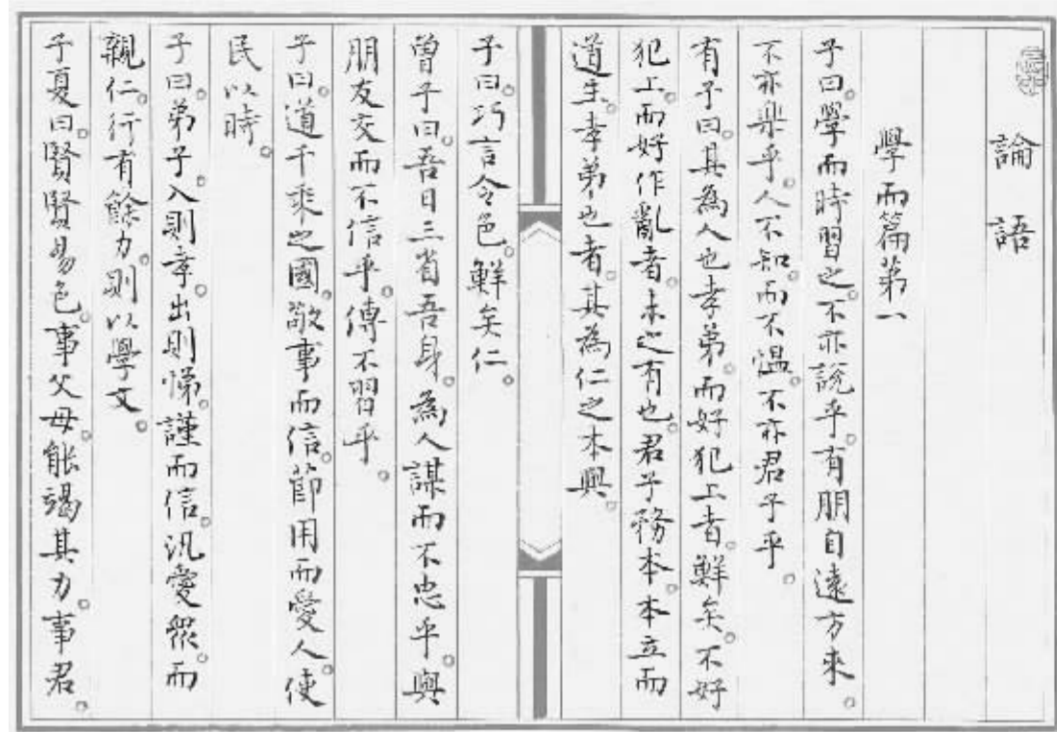 論語
學而篇第一
子曰。學而時習之。不亦說乎。有朋自遠方來。
不亦樂乎。人不知。而不慍。不亦君子乎。
有子曰。其為人也孝弟。而好犯上者。鮮矣。不好
犯上。而好作亂者。未之有也。君子務本。本立而
道生。孝弟也者。其為仁之本與。
子曰。巧言令色。鮮矣仁。
曾子曰。吾日三省吾身。為人謀而不忠乎。與
朋友交而不信乎。傳不習乎。
子曰。道千乘之國。敬事而信。節用而愛人。使
民以時。
子曰。弟子。入則孝。出則悌。謹而信。汎愛眾。而
親仁。行有餘力。則以學文。
子夏曰。賢賢易色。事父母。能竭其力。事君。